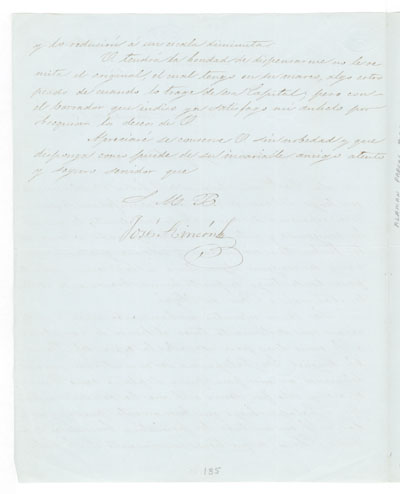 y la reducción á una escala diminuta.
U tendrá la bondad de dispensarme no le re
mita el original, el cual tengo en su marco, algo estro
peado de cuando lo traje de esa Capital, pero con
el borrador que indico ya satisfago mi anhelo por
obsequiar los deseos de U.
Apreciaré se conserve U sin nobedad y que
disponga como guste de su invariable amigo atento
y seguro servidor que
S. M. B.
José Rincón
135